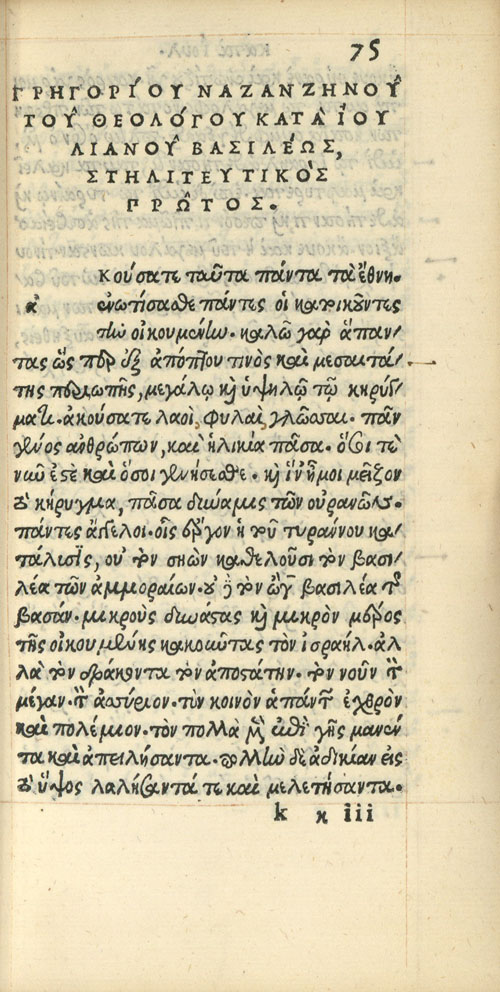 75
ΓΡΗΓΟΡΙΌΥ ΝΑΖΑΝΖΗΝΟΥ͂
ΤΟΥ͂ ΘΕΟΛΌΓΟΥ ΚΑΤᾺ ἸΟΥ
ΛΙΑΝΟΥ͂ ΒΑΣΙΛΈΩΣ,
ΣΤΗΛΙΤΕΥΤΙΚῸΣ
ΠΡΩ͂ΤΟΣ.
κούσατε ταῦτα πάντα τὰ ἔθνη.
ἀ ἐνωτίσασθε πάντες οἱ κατοικοῦντες
τὴν οἰκουμένην. καλῶ γὰρ ἅπαν/
τας ὡς περ ἐξ ἀπόπτου τινὸς καὶ μεσαιτά/
της περιωπῆς, μεγάλῳ καὶ ὑψηλῷ τῷ κηρύγ
ματι. ἀκούσατε λαοὶ, φυλαὶ, γλῶσσαι. πᾶν
γένος ἀνθρώπων, καὶ ἡλικία πᾶσα. ὅσοι τὲ
νῦν ἐστὲ καὶ ὅσοι γενήσεσθε. καὶ ἵν' ᾖ μοι μεῖζον
τὸ κήρυγμα, πᾶσα δύναμις τῶν οὐρανῶν.
πάντες ἄγγελοι. οἷς ἔργον ἡ τοῦ τυράννου κα/
τάλυσις, οὐ τὸν σηὼν καθελοῦσι τὸν βασι/
λέα τῶν ἀμμοραίων. οὐδὲ τὸν ὢγ βασιλέα τῆς
βασάν. μικροὺς δυνάστας καὶ μικρὸν μέρος
τῆς οἰκουμένης κακοῦντας τὸν ἰσραήλ. ἀλ
λὰ τὸν δράκοντα τὸν ἀποστάτην. τὸν νοῦν τὸν
μέγαν. τὸν ἀσσύριον. τὸν κοινὸν ἁπάντων ἐχθρὸν
καὶ πολέμιον. τὸν πολλὰ μὲν ἐπὶ γῆς μανέν
τα καὶ ἀπειλήσαντα. πολλὴν δὲ ἀδικίαν εἰς
τὸ ὕψος λαλήσαντά τε καὶ μελετήσαντα.
k κ iii